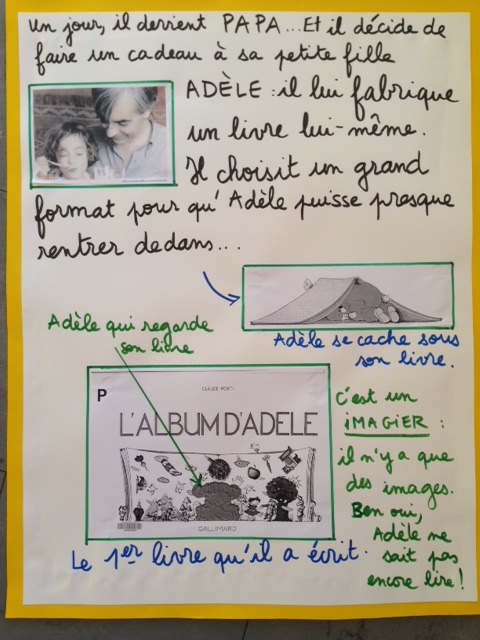 Un jour, il devient PAPA... Et il décide de
faire un cadeau à sa petite fille
ADÈLE : il lui fabrique
un livre lui-même.
Il choisit un grand
format pour qu'Adèle puisse presque
rentrer dedans...
Adèle se cache sous
son livre.
Adèle qui regarde
son livre
P
CLAUDE PONTI
L'ALBUM D'ADÈLE
GALLIMARD
C'est un
IMAGIER :
il n'y a que
des images.
Ben oui,
Adèle ne
sait pas
encore lire !
Le 1er livre qu'il a écrit.